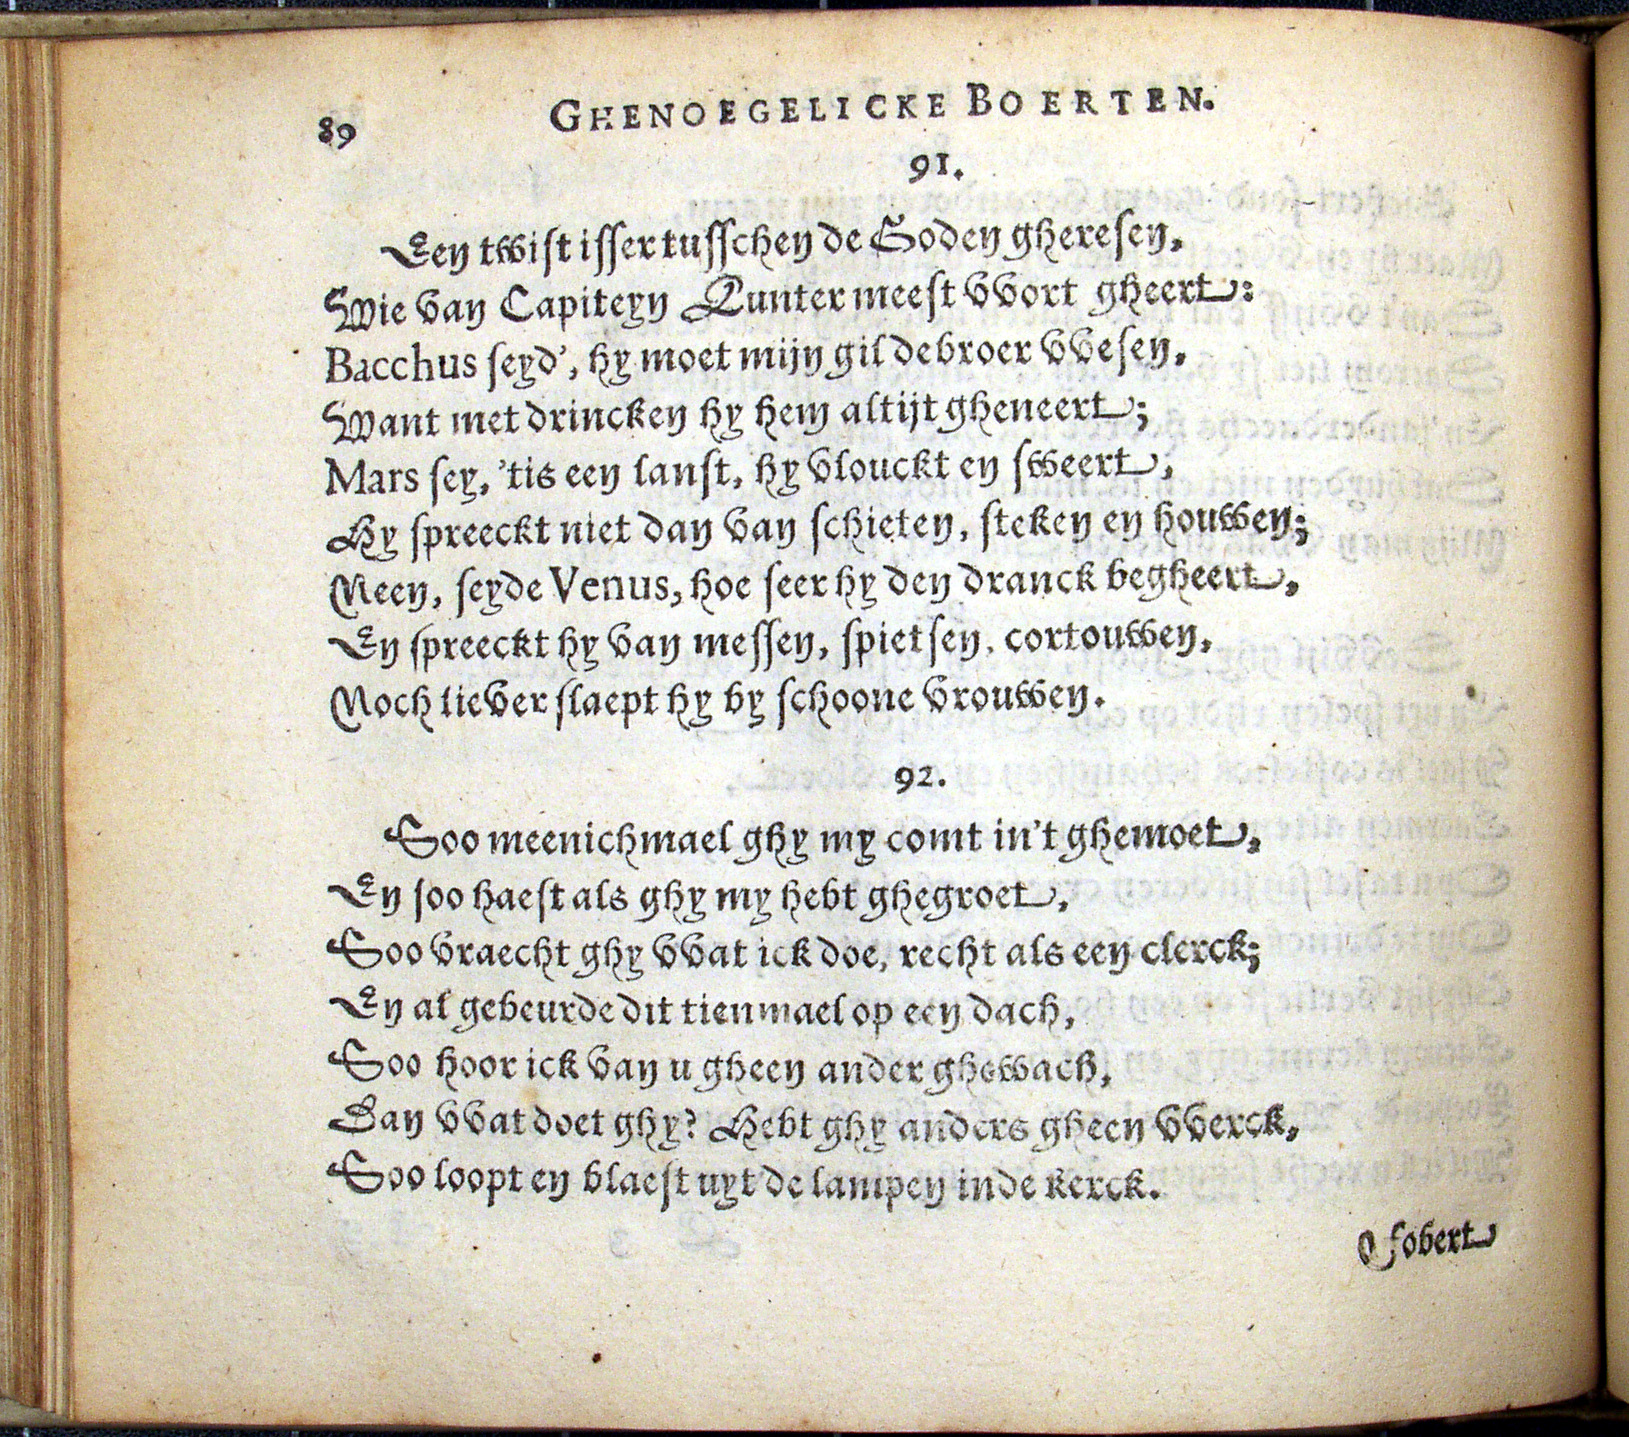 89 GHENOEGELICKE BOERTEN.
91.
Een twist isser tusschen de Goden gheresen,
Wie van Capiteyn Qunter meest vvort gheert:
Bacchus seyd', hy moet mijn gildebroer vvesen,
Want met drincken hy hem altijt gheneert;
Mars sey, 'tis een lanst, hy vlouckt en sweert,
Hy spreeckt niet dan van schieten, steken en houwen;
Neen, seyde Venus, hoe seer hy den dranck begheert,
En spreeckt hy van messen, spietsen, cortouwen,
Noch liever slaept hy by schoone vrouwen.
92.
Soo meenichmael ghy my comt in't ghemoet,
En soo haest als ghy my hebt ghegroet,
Soo vraecht ghy vvat ick doe, recht als een clerck;
En al gebeurde dit tienmael op een dach,
Soo hoor ick van u gheen ander ghewach,
Dan vvat doet ghy? Hebt ghy anders gheen vverck,
Soo loopt en blaest uyt de lampen inde kerck.
O Jobert